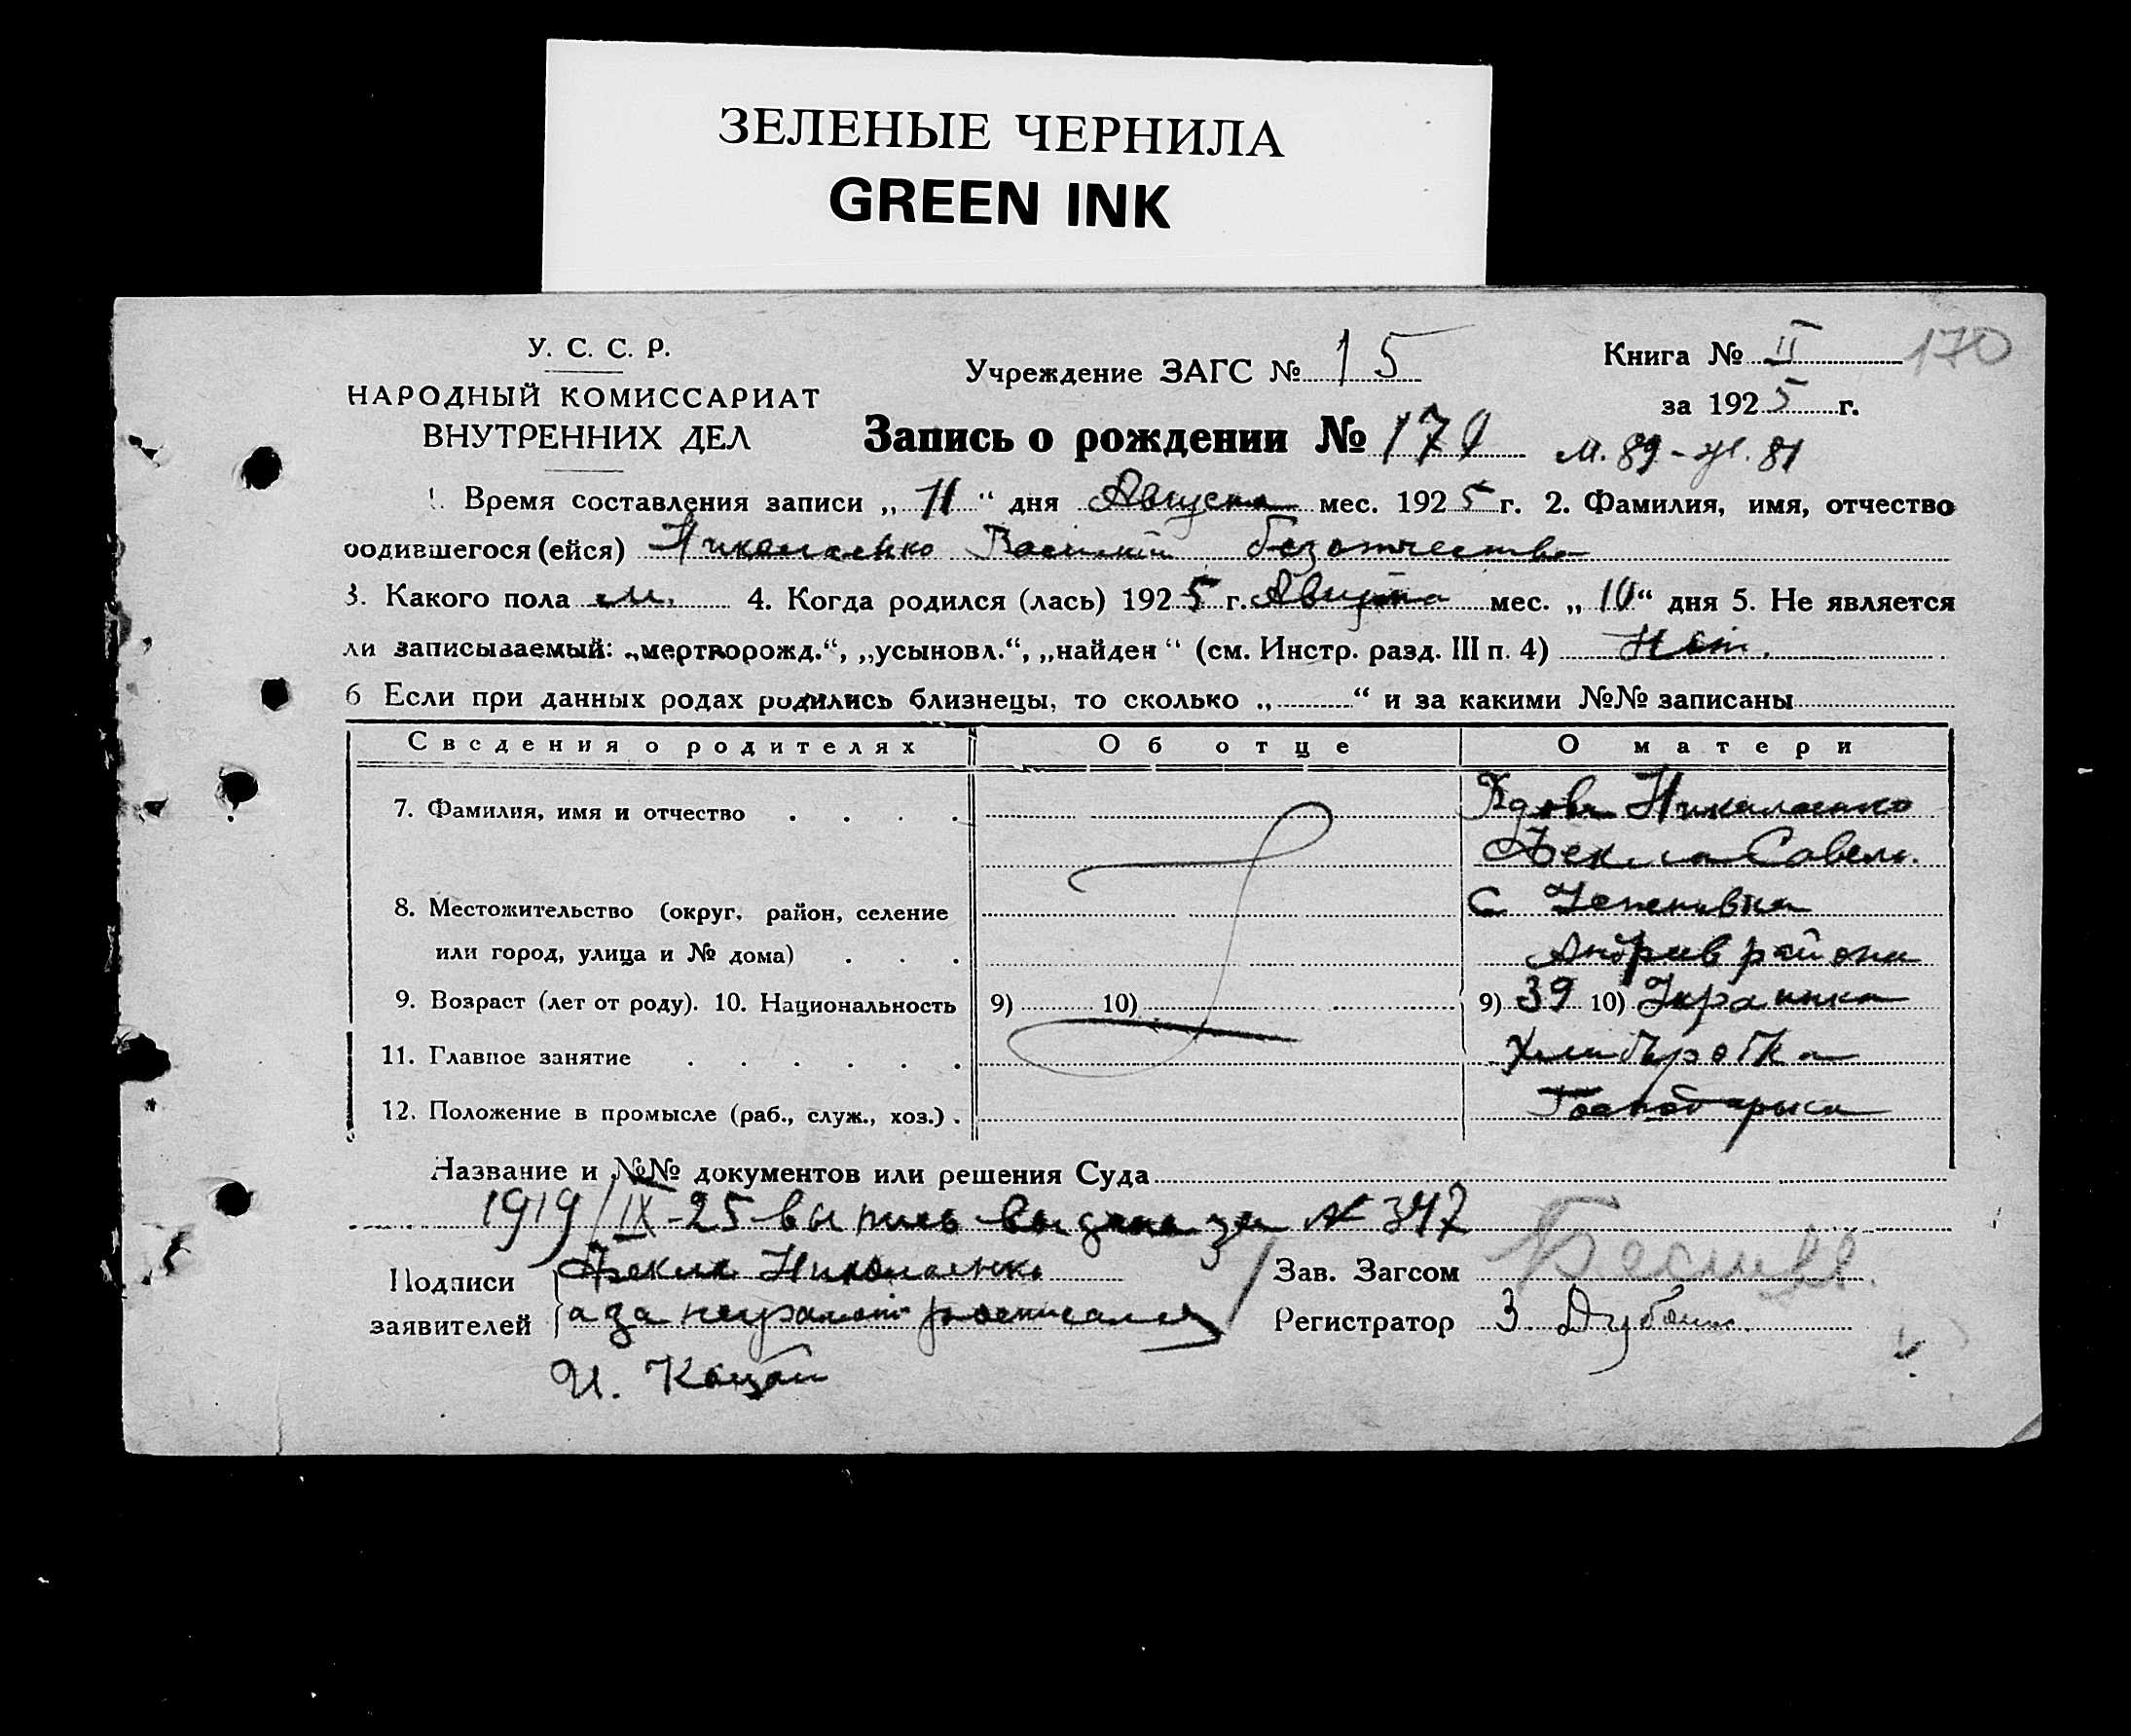 ЗЕЛЕНЫЕ ЧЕРНИЛА
GREEN INK
У. С. С. Р.
НАРОДНЫЙ КОМИССАРИАТ
ВНУТРЕННИХ ДЕЛ
Учреждение ЗАГС № 15
Книга № II 170
за 1925 г.
Запись о рождении № 170 м. 89 - ж. 81
1. Время составления записи „11“ дня Августа мес. 1925 г. 2. Фамилия, имя, отчество
родившегося (ейся) Николаенко Василий без отчества
3. Какого пола м. 4. Когда родился (лась) 1925 г. Августа мес. „10“ дня 5. Не является
ли записываемый: „мертворожд.“, „усыновл.“, „найден“ (см. Инстр. разд. III п. 4) Нет.
6 Если при данных родах родились близнецы, то сколько „ “ и за какими №№ записаны
Сведения о родителях Об отце О матери
7. Фамилия, имя и отчество Вдова Николаенко
Фекла Савел.
8. Местожительство (округ, район, селение с Успеновка
или город, улица и № дома) Андреев района
9. Возраст (лет от роду). 10. Национальность 9) 10) 9) 39 10) Украинка
11. Главное занятие
12. Положение в промысле (раб., служ., хоз.)
Название и №№ документов или решения Суда
1919/IX-25 выпись выдана за № 347
Подписи Фекла Николаенко Зав. Загсом
заявителей а за неграмот росписался Регистратор З
И.